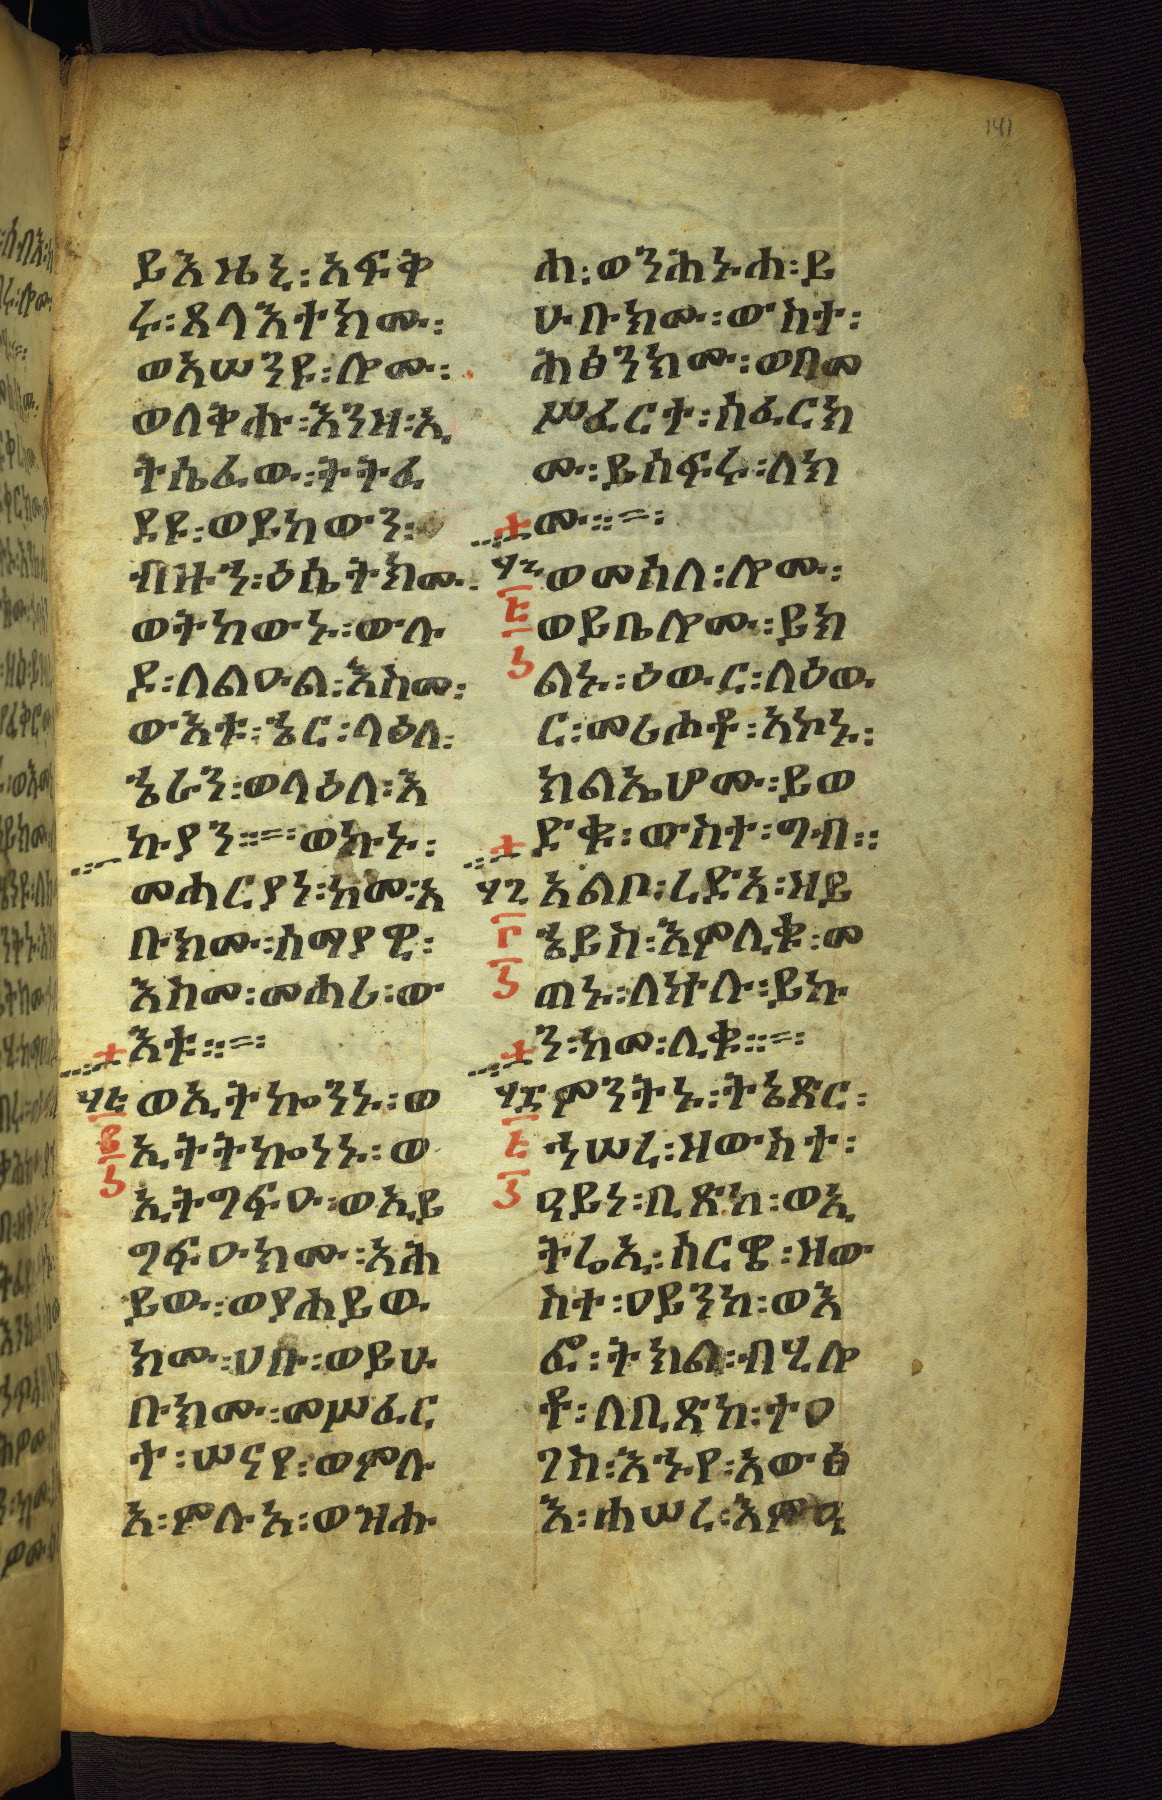 141
ይእዜኒ፡አፍቅ
ሩ፡ጸላእተክሙ፡
ወአሠንዩ፡ሎሙ፡
ወለቅሑ፡እንዘ፡ኢ
ትሴፈው፡ትትፈ
ደዩ፡ወይከውን፡
ብዙኅ፡ዕሴትክሙ፡
ወትከውኑ፡ውሉ
ደ፡ለልዑል፡እስመ፡
ውእቱ፡ኄር፡ላዕለ፡
ኄራን፡ወላዕለ፡እ
ኩያን።=፡ወኩኑ፡
መሐርያነ፡ከመ፡አ
ቡክሙ፡ሰማያዊ፡
እስመ፡መሐሪ፡ው
እቱ።=፡
፶፭ ወኢትኰንኑ፡ወ
ኢትትኰነኑ፡ወ
ኢትግፍዑ፡ወኢይ
ግፍዑክሙ፡አሕ
ይው፡ወያሐይው
ክሙ፡ሀቡ፡ወይሁ
ቡክሙ፡መሥፈር
ተ፡ሠናየ፡ወምሉ
አ፡ምሉአ፡ወዝሑ
ሐ፡ወንሕኑሐ፡ይ
ሁቡክሙ፡ውስተ፡
ሕፅንክሙ፡ወበመ
ሥፈርተ፡ሰፈርክ
ሙ፡ይሰፍሩ፡ለክ
ሙ።=፡
ወመሰለ፡ሎሙ፡
ወይቤሎሙ፡ይክ
ልኑ፡ዕውር፡ለዕው
ር፡መሪሖቶ፡አኮኑ፡
ክልኤሆሙ፡ይወ
ድቁ፡ውስተ፡ግብ።
አልቦ፡ረድአ፡ዘይ
ኄይስ፡እምሊቁ፡መ
ጠኑ፡ለኵሉ፡ይኩ
ን፡ከመ፡ሊቁ።=፡
ምንትኑ፡ትኔጽር፡
ኀሠረ፡ዘውስተ፡
ዐይነ፡ቢጽከ፡ወኢ
ትሬኢ፡ሰርዌ፡ዘው
ስተ፡ዐይንከ፡ወእ
ፎ፡ትክል፡ብሂሎ
ቶ፡ለቢጽከ፡ተዐ
ገስ፡እኁየ፡አውፅ
እ፡ሐሠረ፡እምዐ